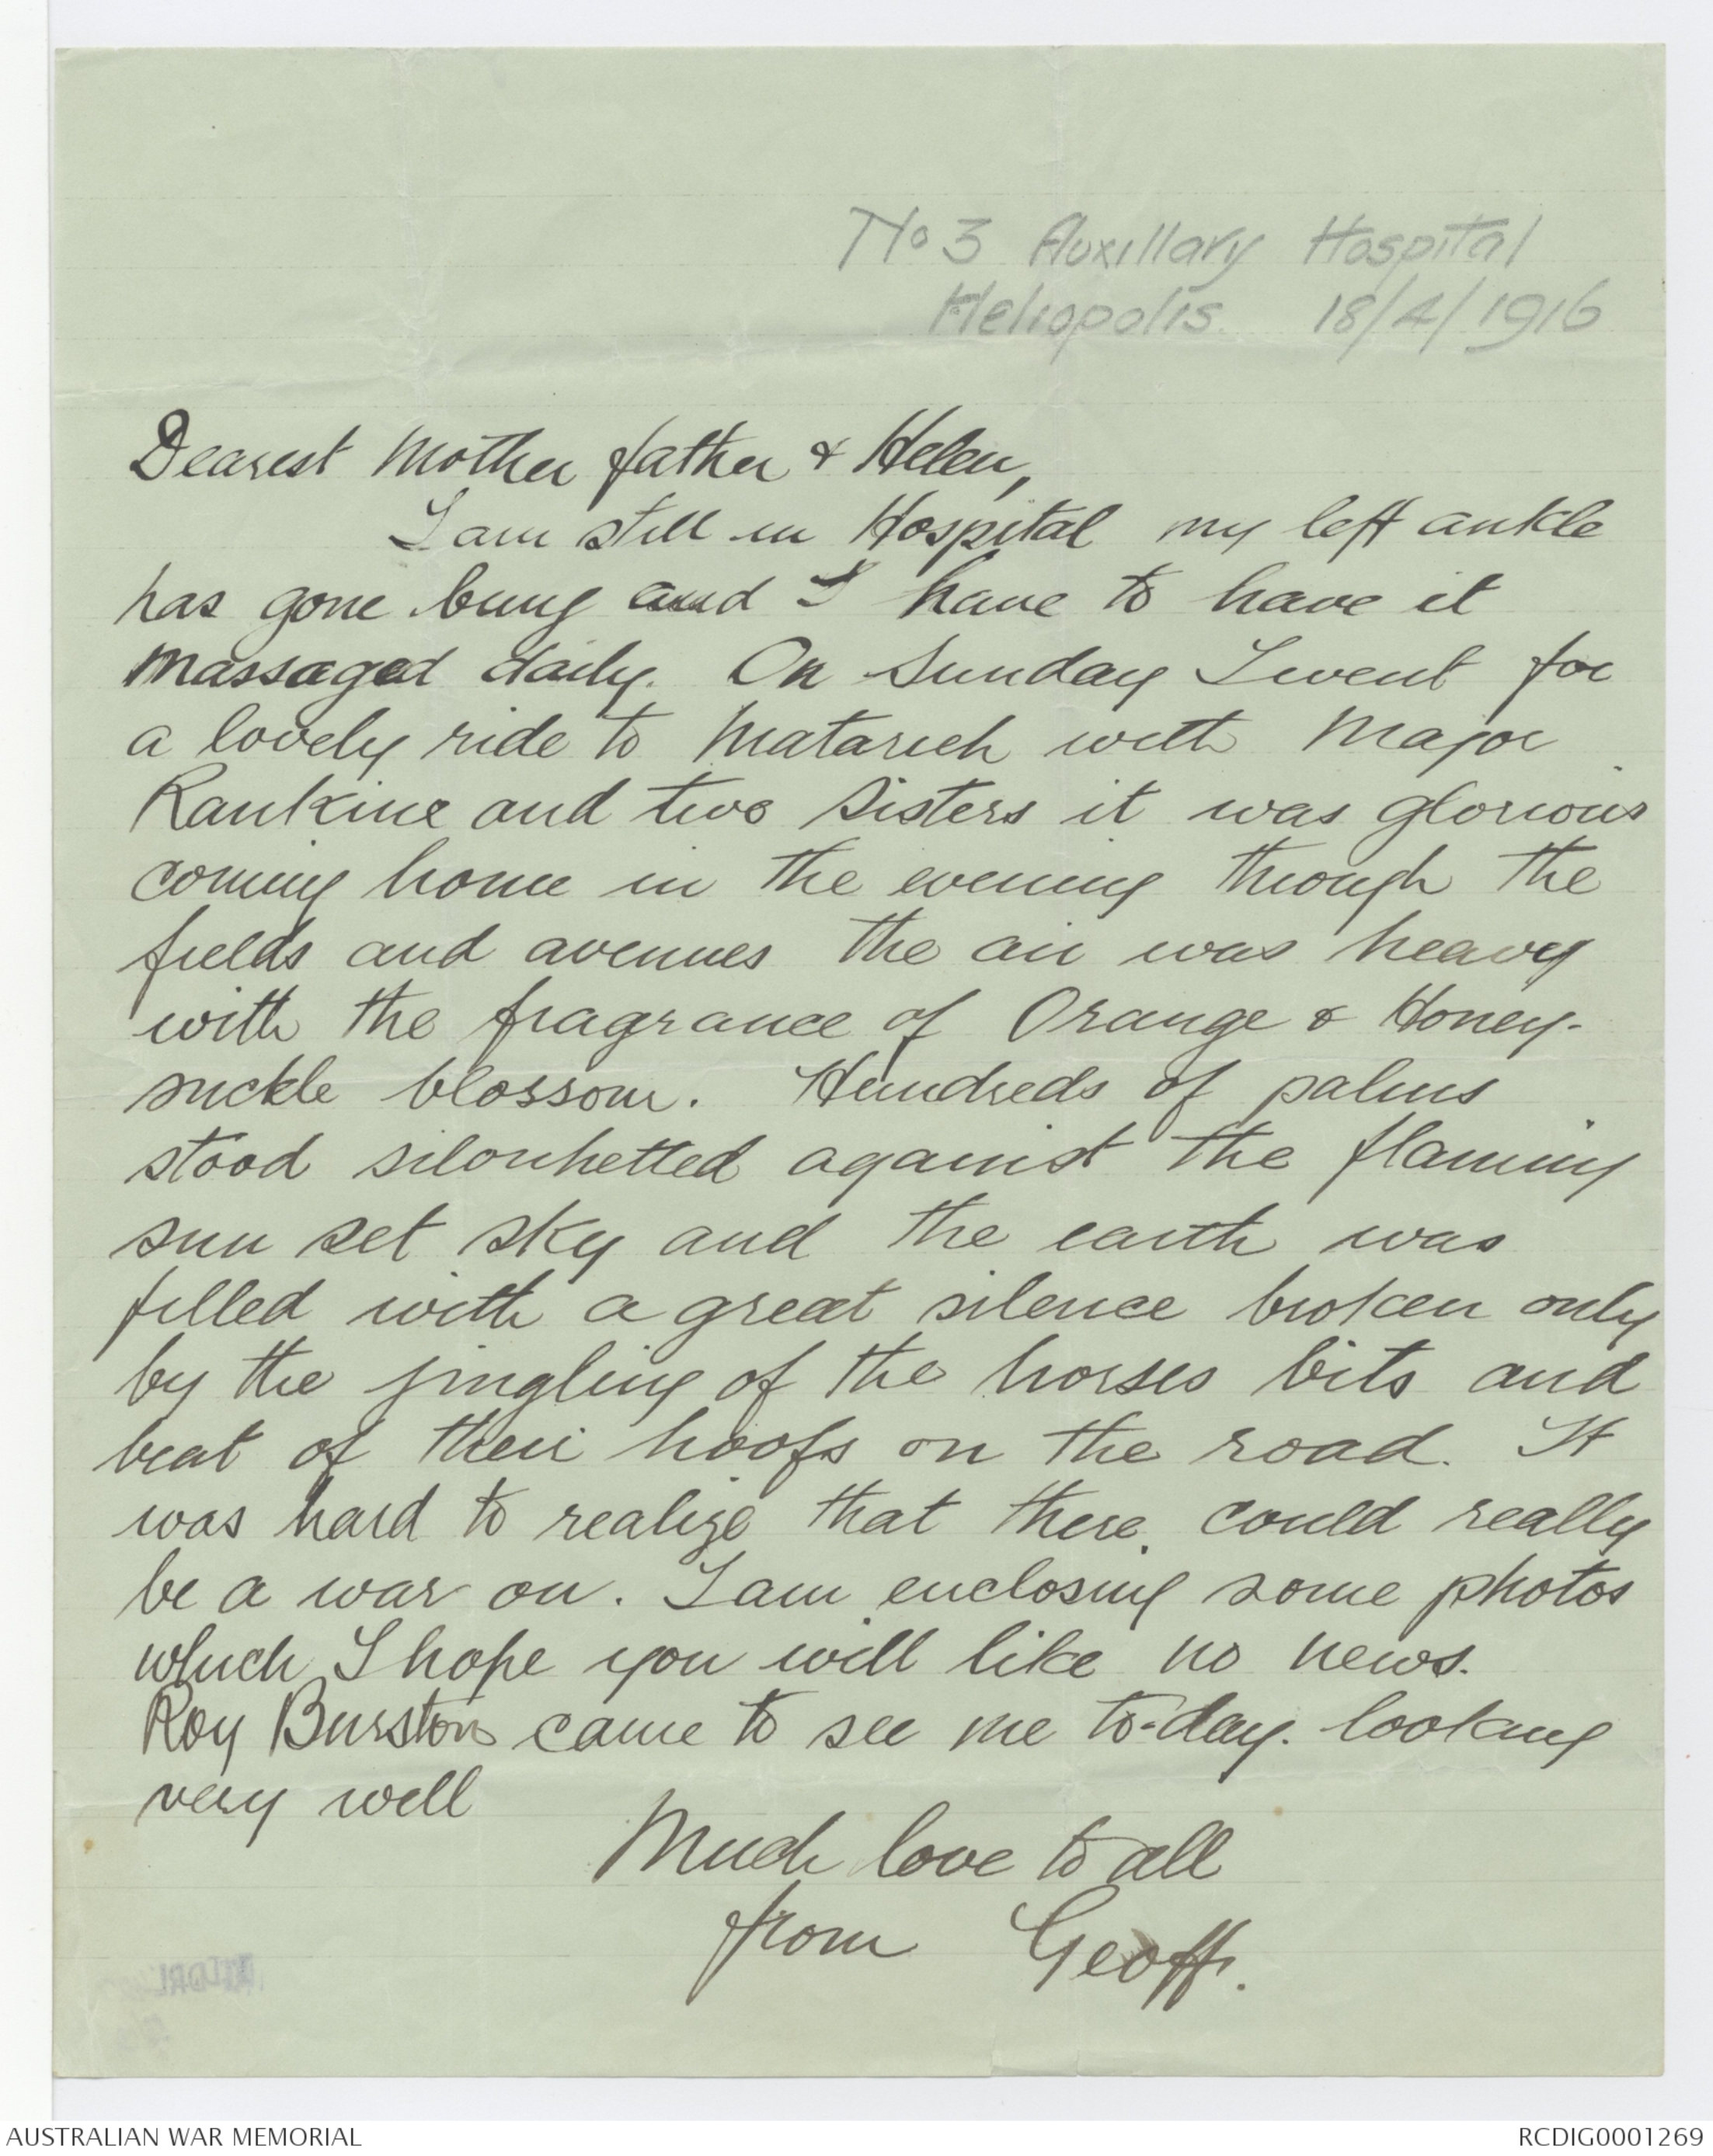 No 3 Auxillary Hospital
Heliopolis. 18/4/1916
Dearest Mother father & Helen,
I am still in Hospital my left ankle
has gone bung and I have to have it
massaged daily. On Sunday I went for
a lovely ride to Matarieh with Major
Rankine and two Sisters it was glorious
coming home in the evening through the
fields and avenues the air was heavy
with the fragrance of Orange & Honey-
suckle blossom. Hundreds of palms
stood silouhetted against the flaming
sun set sky and the earth was
filled with a great silence broken only
by the jingling of the horses bits and
beat of their hoofs on the road. It
was hard to realize that there could really
be a war on. I am enclosing some photos
which I hope you will like no news.
Roy Burston came to see me to-day. looking
very well
Much love to all
from Geoff.
AUSTRALIAN WAR MEMORIAL
RCDIG0001269